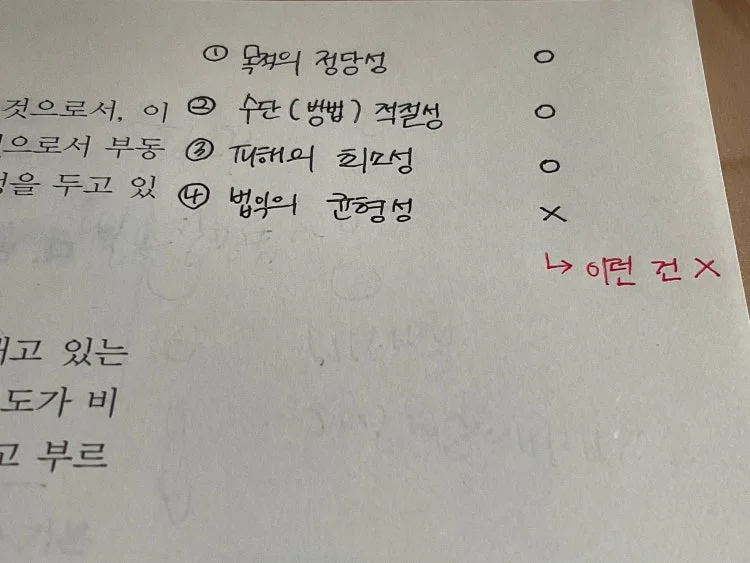 ① 목적의 정당성 O
것으로서, 이 ② 수단(방법) 적절성 O
으로서 부동 ③ 피해의 최소성 O
을 두고 있 ④ 법익의 균형성 X
↳ 이런 건 X
고 있는
도가 비
고 부르